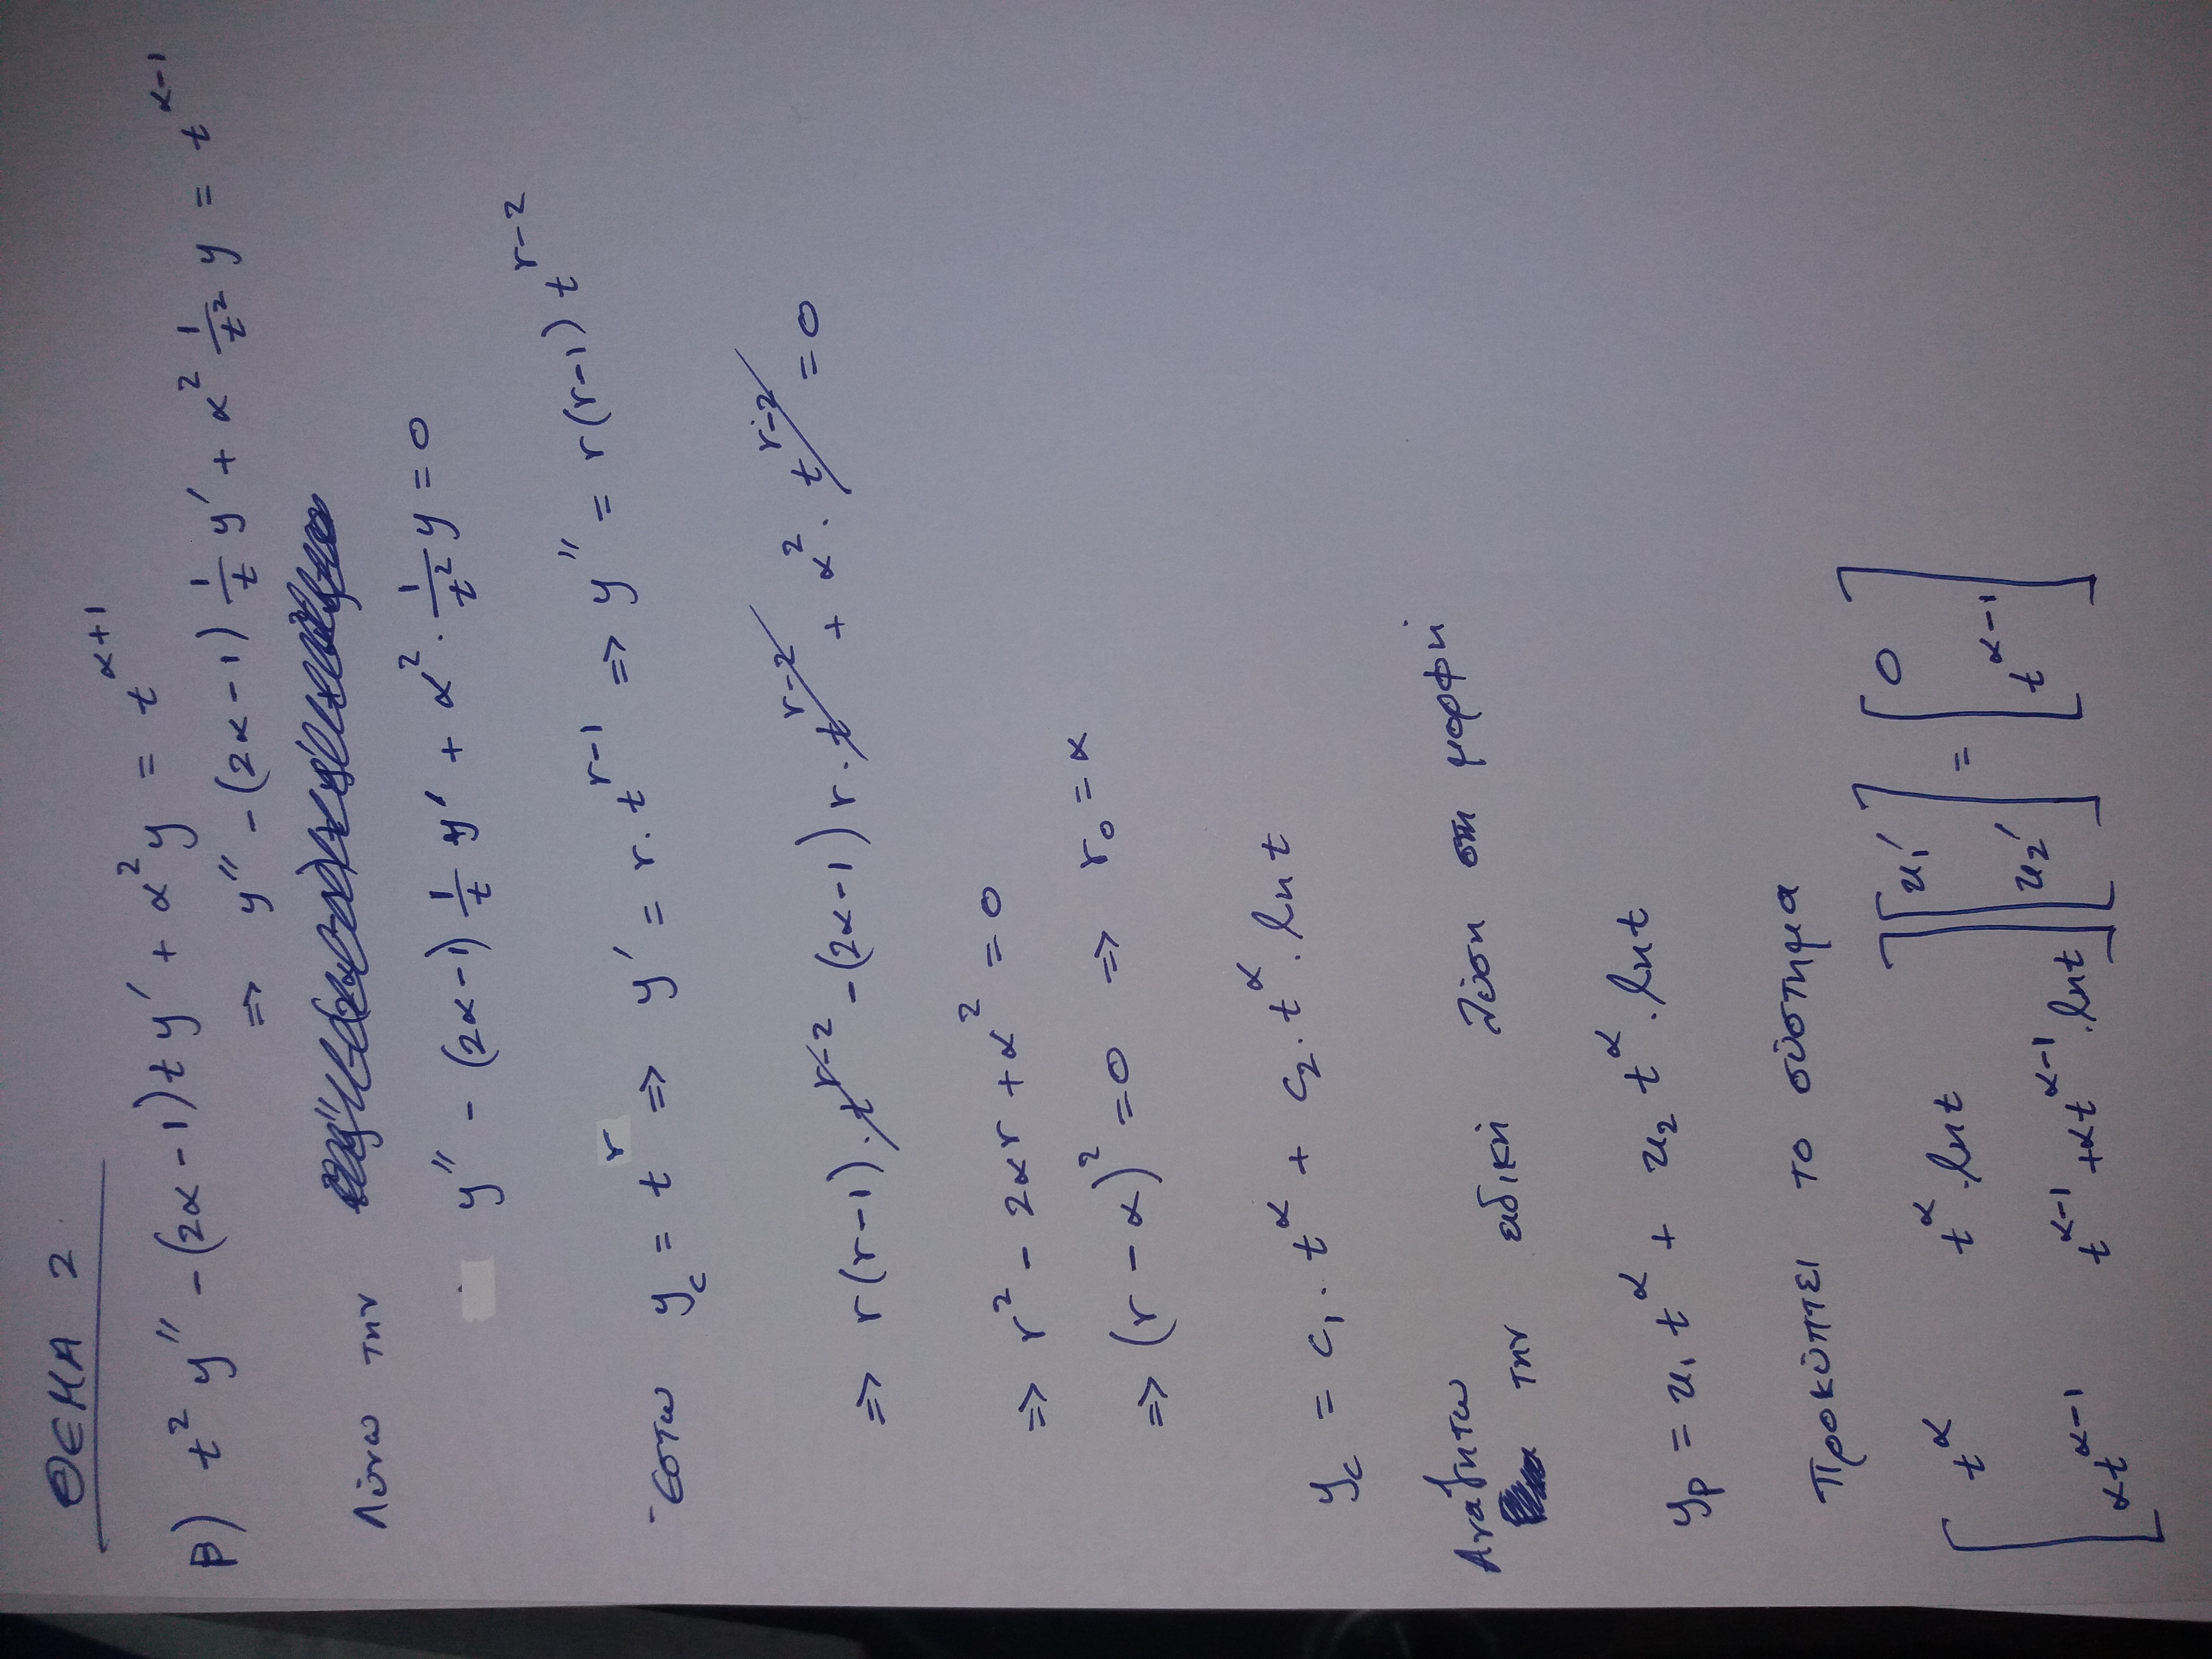 ΘΕΜΑ 2
β) t² y'' - (2α-1) t y' + α² y = t^{α+1}
=> y'' - (2α-1) \frac{1}{t} y' + α² \frac{1}{t²} y = t^{α-1}
Λύνω την
y'' - (2α-1) \frac{1}{t} y' + α² · \frac{1}{t²} y = 0
Έστω y_c = t^r => y' = r · t^{r-1} => y'' = r(r-1) t^{r-2}
=> r(r-1) · t^{r-2} - (2α-1) r · t^{r-2} + α² · t^{r-2} = 0
=> r² - 2αr + α² = 0
=> (r - α)² = 0 => r₀ = α
y_c = c₁ · t^α + c₂ · t^α · ln t
Αναζητω την ειδική λύση στη μορφή
y_p = u₁ t^α + u₂ t^α · ln t
Προκύπτει το σύστημα
[ t^α   t^α · ln t ] [ u₁' ] = [ 0 ]
[ αt^{α-1}   t^{α-1} + αt^{α-1} · ln t ] [ u₂' ] [ t^{α-1} ]